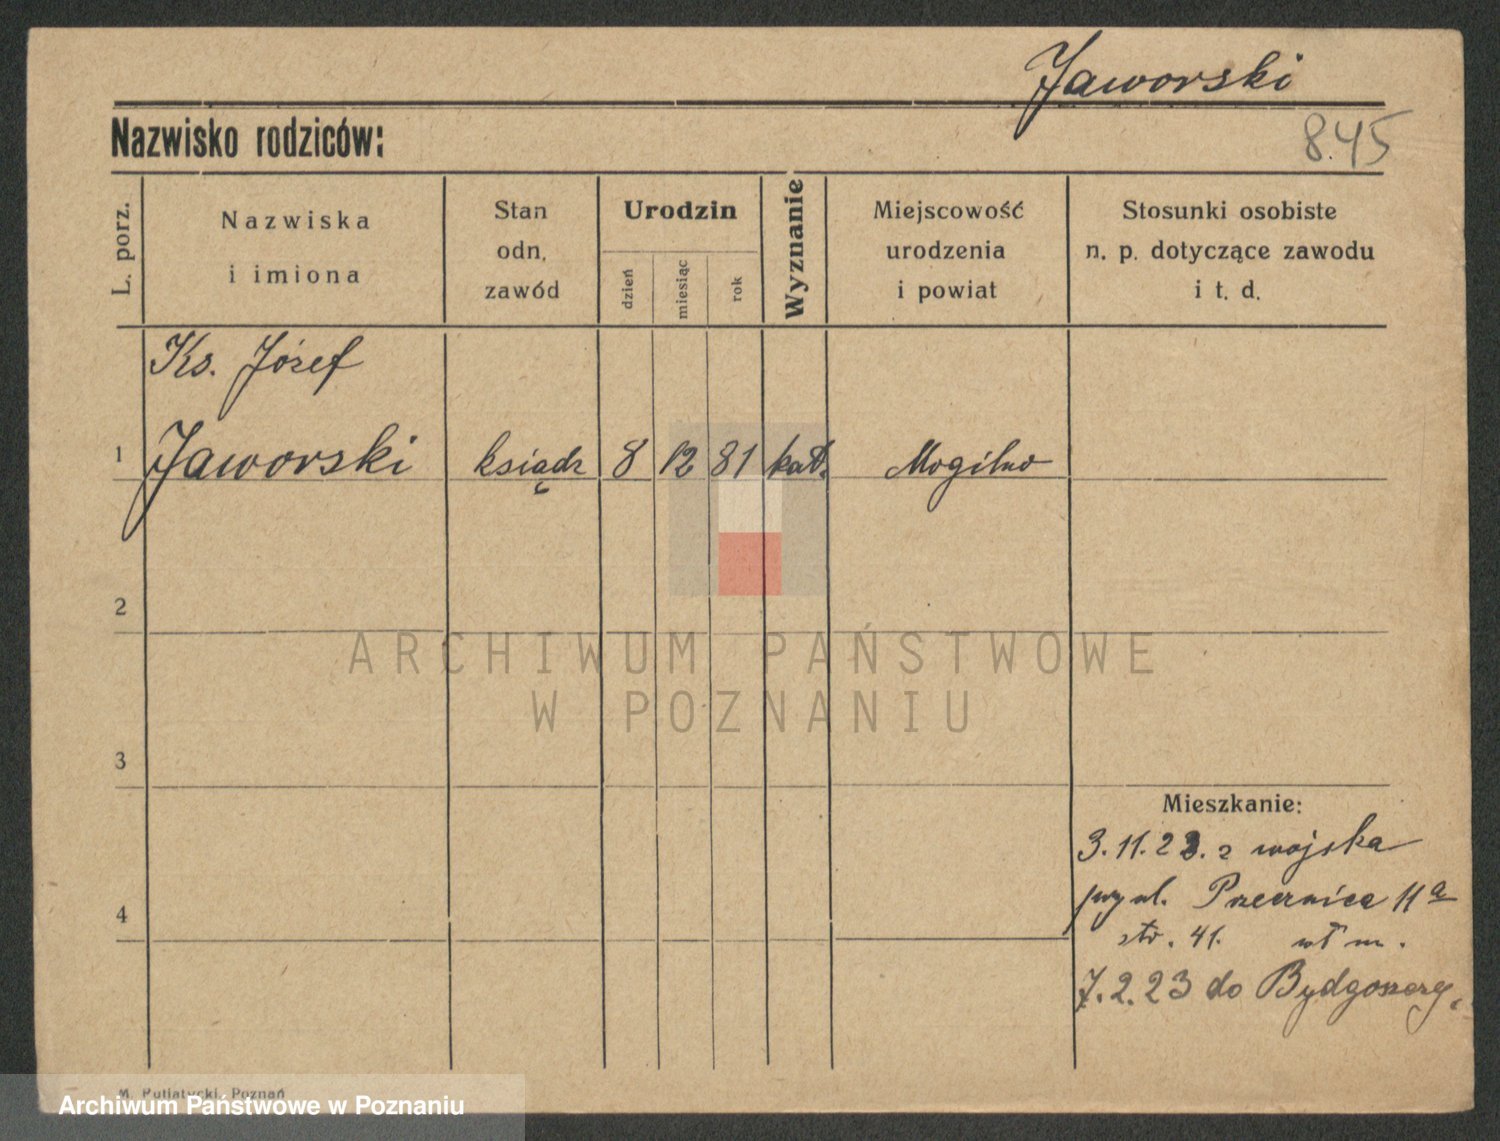 Jaworski
Nazwisko rodziców:
845
L. porz.
Nazwiska
i imiona
Stan
odn.
zawód
Urodzin
dzień
miesiąc
rok
Wyznanie
Miejscowość
urodzenia
i powiat
Stosunki osobiste
n. p. dotyczące zawodu
i t. d.
Ks. Józef
1 Jaworski ksiądz 8 12 81 kat. Mogilno
2
ARCHIWUM PAŃSTWOWE
W POZNANIU
3
Mieszkanie:
3.11.22. z wojska
przy ul. 11a
str. 41. wł m.
4
7.2.23 do Bydgoszczy.
M. Putiatycki, Poznań
Archiwum Państwowe w Poznaniu